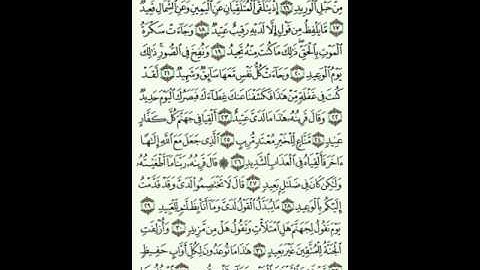 مِنْ حَبْلِ الْوَرِيدِ ١٦ إِذْ يَتَلَقَّى الْمُتَلَقِّيَانِ عَنِ الْيَمِينِ وَعَنِ الشِّمَالِ قَعِيدٌ
١٧ مَا يَلْفِظُ مِنْ قَوْلٍ إِلَّا لَدَيْهِ رَقِيبٌ عَتِيدٌ ١٨ وَجَاءَتْ سَكْرَةُ
الْمَوْتِ بِالْحَقِّ ذَلِكَ مَا كُنْتَ مِنْهُ تَحِيدُ ١٩ وَنُفِخَ فِي الصُّورِ ذَلِكَ
يَوْمُ الْوَعِيدِ ٢٠ وَجَاءَتْ كُلُّ نَفْسٍ مَعَهَا سَائِقٌ وَشَهِيدٌ ٢١ لَقَدْ
كُنْتَ فِي غَفْلَةٍ مِنْ هَذَا فَكَشَفْنَا عَنْكَ غِطَاءَكَ فَبَصَرُكَ الْيَوْمَ حَدِيدٌ
٢٢ وَقَالَ قَرِينُهُ هَذَا مَا لَدَيَّ عَتِيدٌ ٢٣ أَلْقِيَا فِي جَهَنَّمَ كُلَّ كَفَّارٍ
عَنِيدٍ ٢٤ مَنَّاعٍ لِلْخَيْرِ مُعْتَدٍ مُرِيبٍ ٢٥ الَّذِي جَعَلَ مَعَ اللَّهِ إِلَهًا
آخَرَ فَأَلْقِيَاهُ فِي الْعَذَابِ الشَّدِيدِ ٢٦ ۞ قَالَ قَرِينُهُ رَبَّنَا مَا أَطْغَيْتُهُ
وَلَكِنْ كَانَ فِي ضَلَالٍ بَعِيدٍ ٢٧ قَالَ لَا تَخْتَصِمُوا لَدَيَّ وَقَدْ قَدَّمْتُ
إِلَيْكُمْ بِالْوَعِيدِ ٢٨ مَا يُبَدَّلُ الْقَوْلُ لَدَيَّ وَمَا أَنَا بِظَلَّامٍ لِلْعَبِيدِ ٢٩
يَوْمَ نَقُولُ لِجَهَنَّمَ هَلِ امْتَلَأْتِ وَتَقُولُ هَلْ مِنْ مَزِيدٍ ٣٠ وَأُزْلِفَتِ
الْجَنَّةُ لِلْمُتَّقِينَ غَيْرَ بَعِيدٍ ٣١ هَذَا مَا تُوعَدُونَ لِكُلِّ أَوَّابٍ حَفِيظٍ